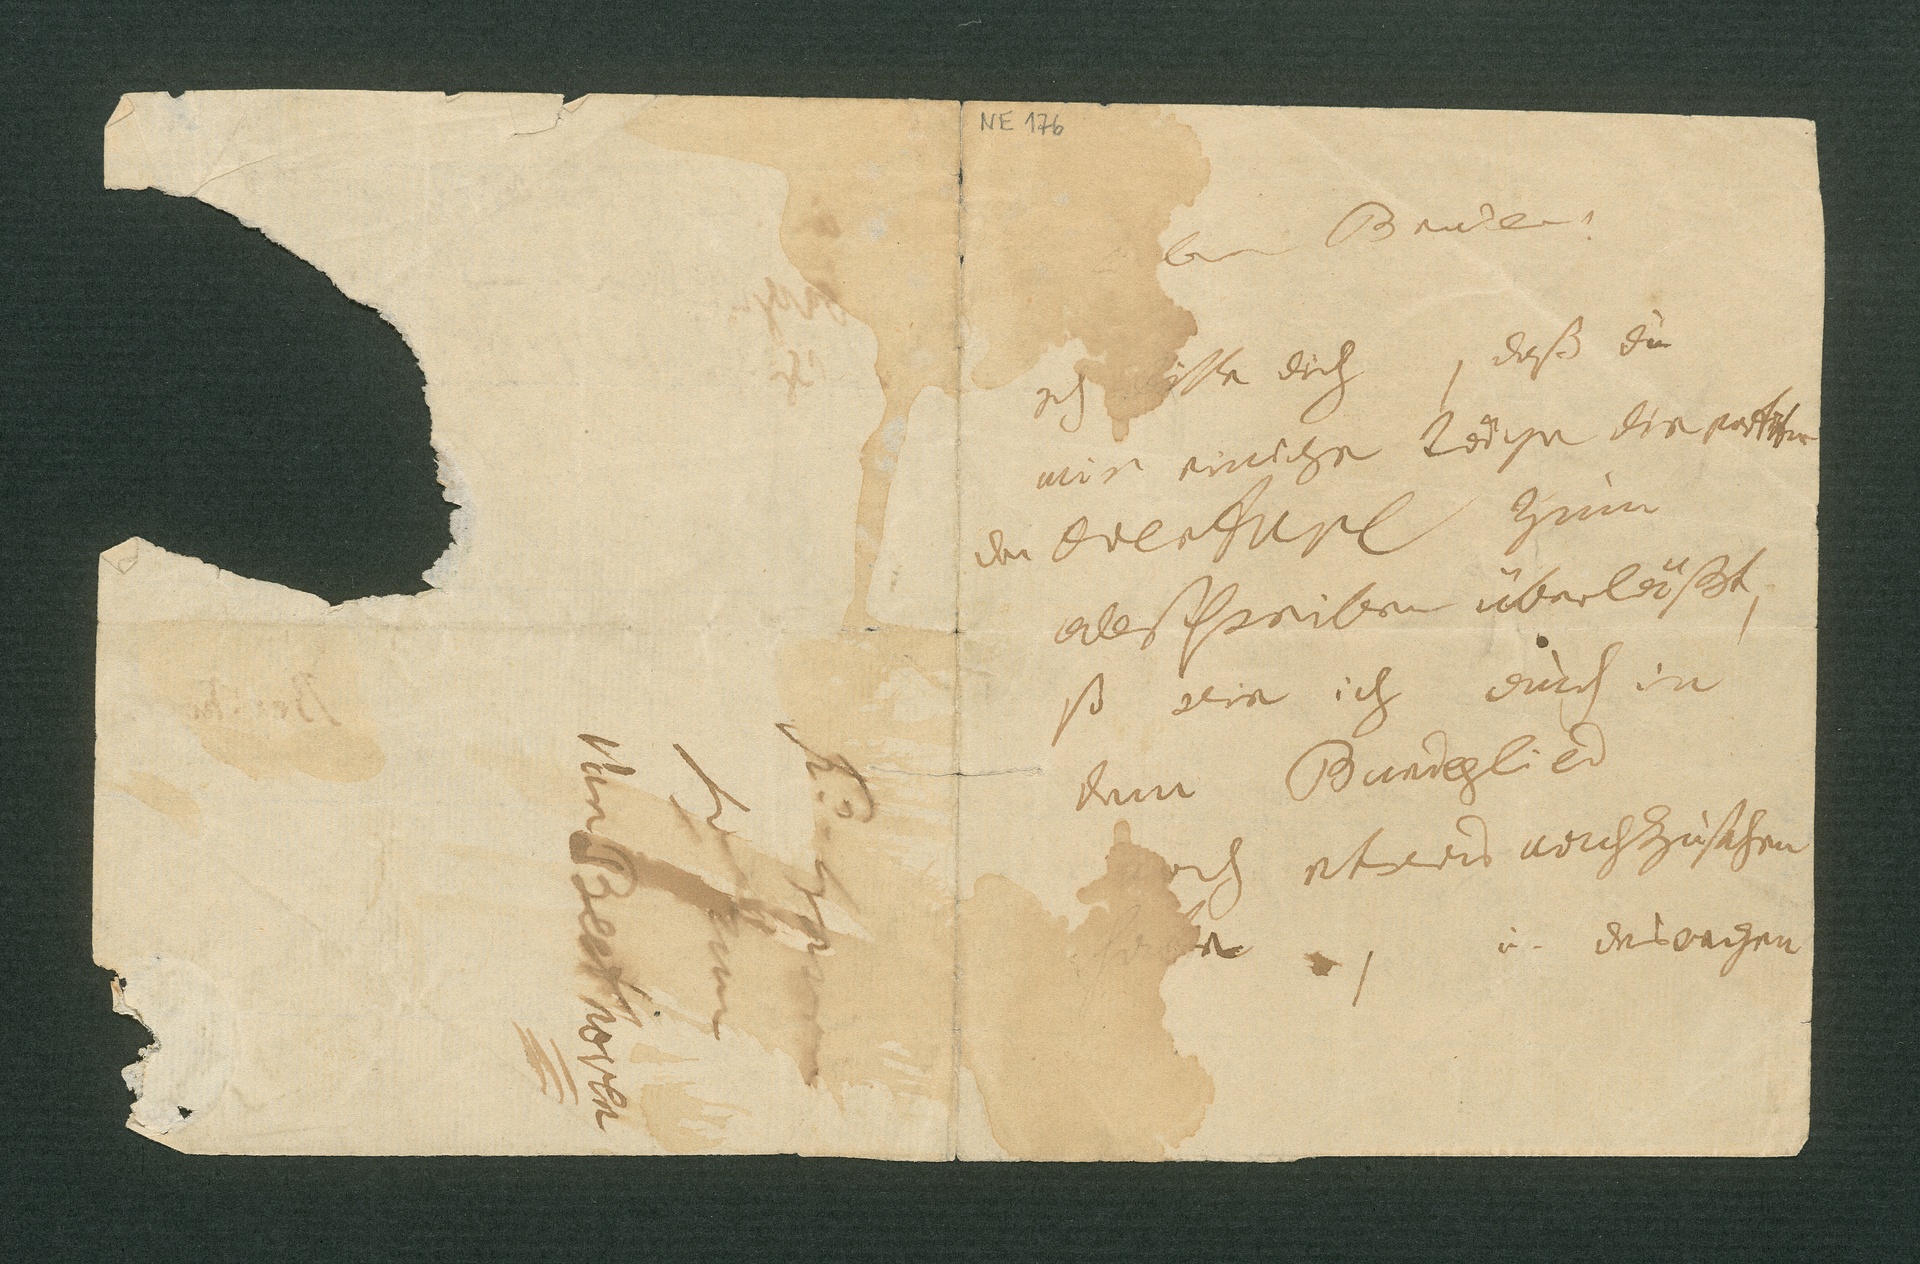 van Beethoven
NE 176
ben Bruder!
ich bitte dich, daß du
mir einige Täge die partitur
der overture zum
abschreiben überläßt,
so wie ich auch in
dem Bundeslied
noch etwas nachzusehen
habe, u. deswegen